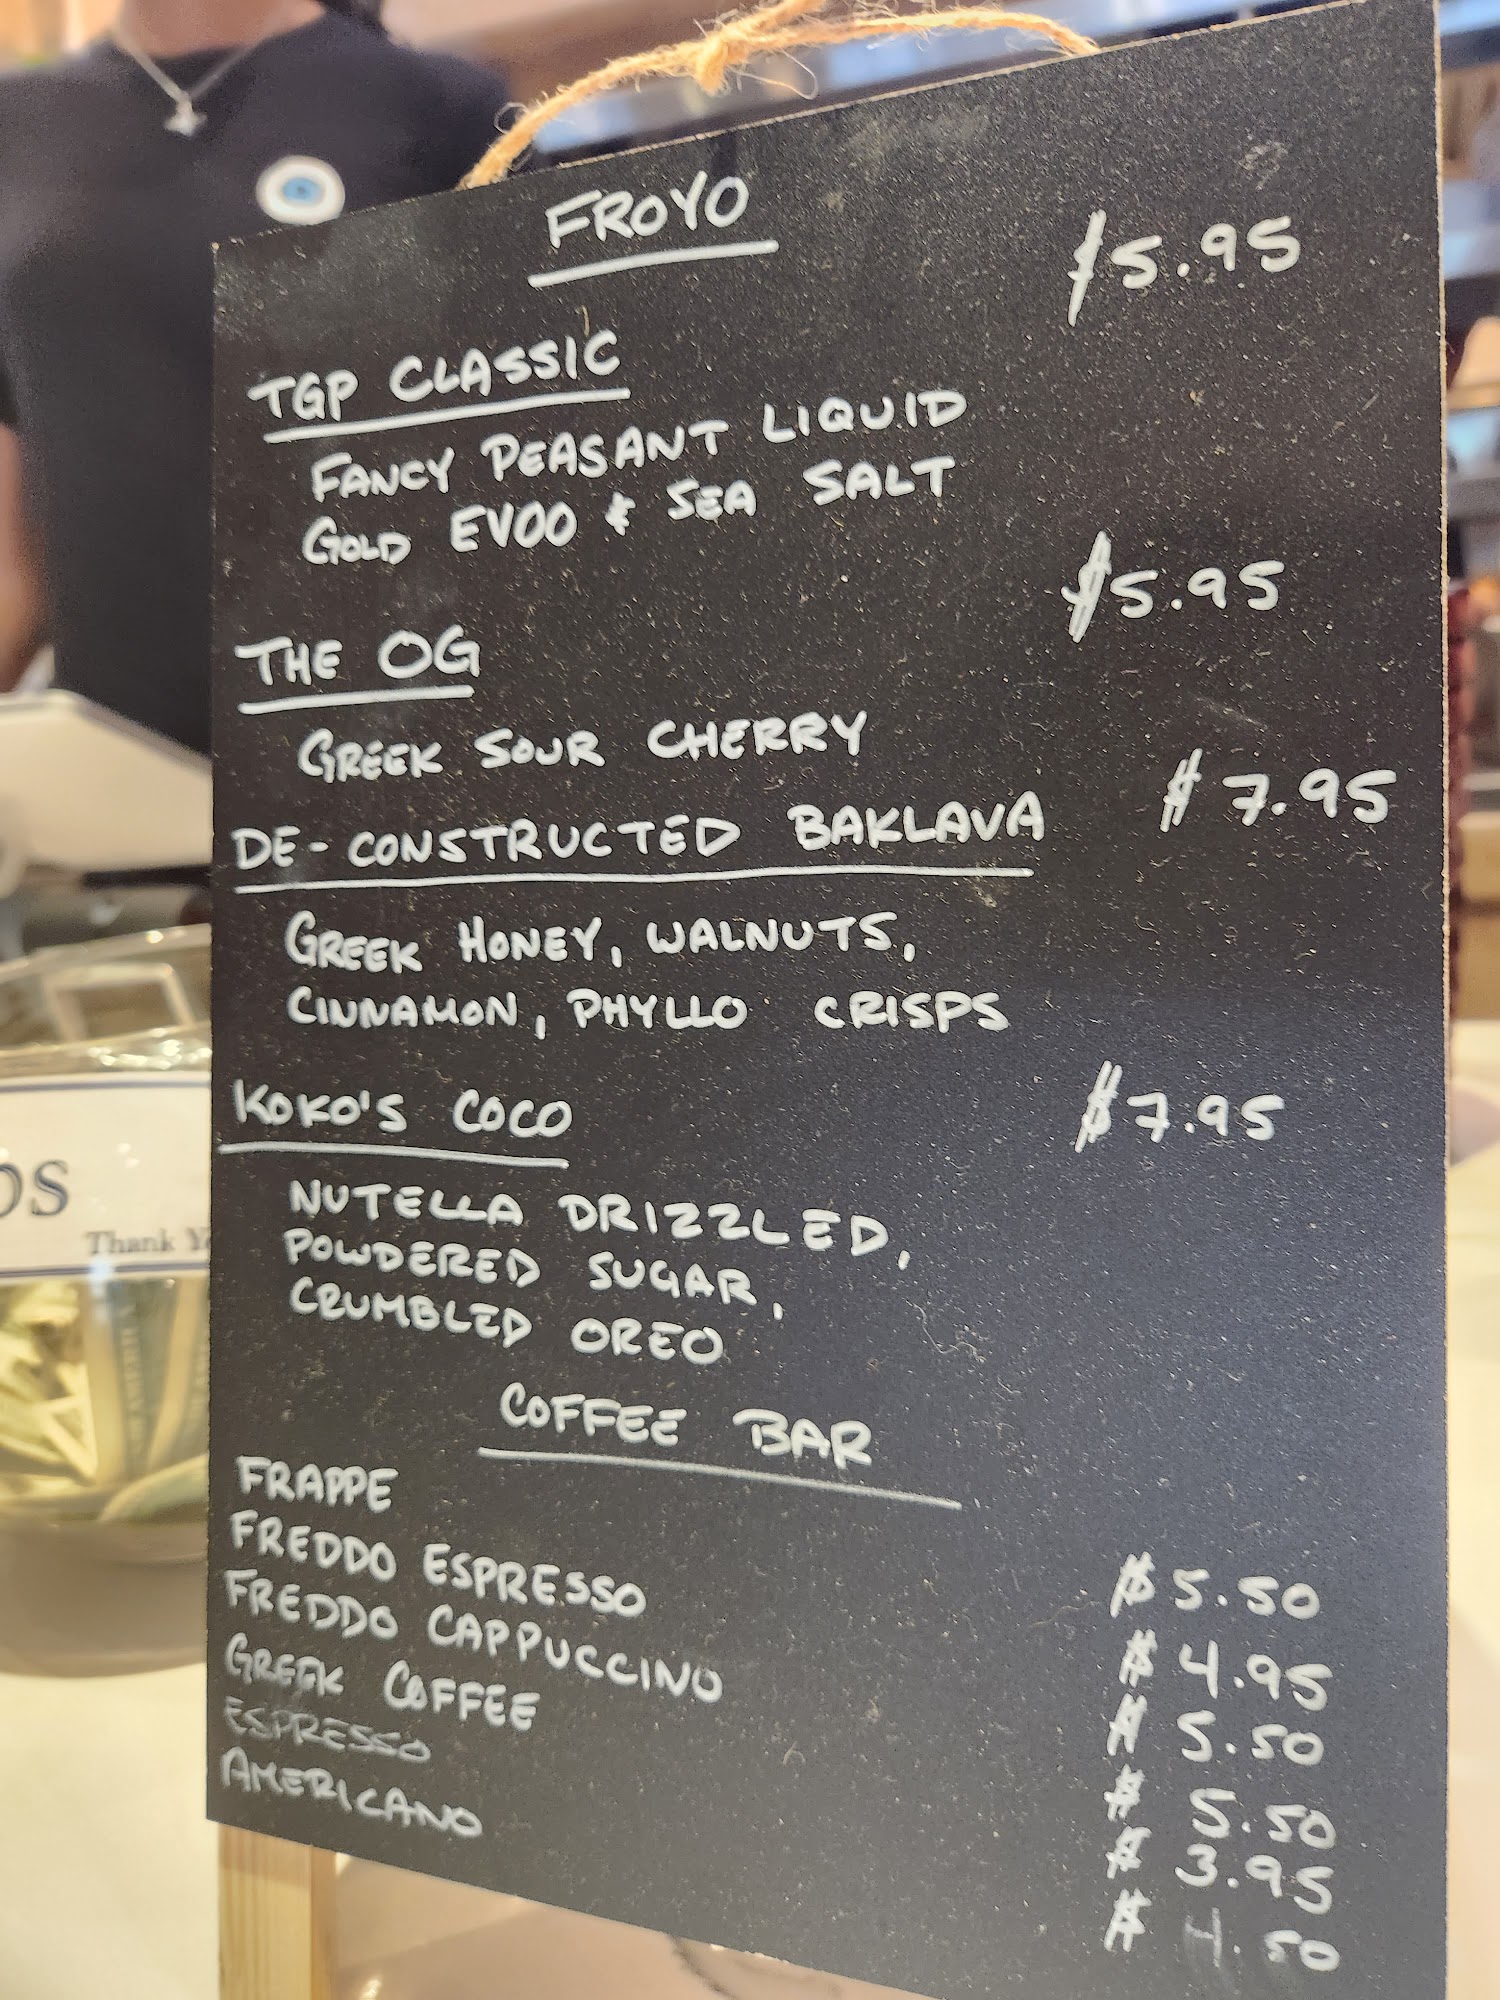 FROYO
TGP CLASSIC $5.95
FANCY PEASANT LIQUID
GOLD EVOO & SEA SALT
THE OG $5.95
GREEK SOUR CHERRY
DE-CONSTRUCTED BAKLAVA $7.95
GREEK HONEY, WALNUTS,
CINNAMON, PHYLLO CRISPS
KOKO'S COCO $7.95
NUTELLA DRIZZLED,
POWDERED SUGAR,
CRUMBLED OREO
COFFEE BAR
FRAPPE $5.50
FREDDO ESPRESSO $4.95
FREDDO CAPPUCCINO $5.50
GREEK COFFEE $5.50
ESPRESSO $3.95
AMERICANO $4.50
OS
Thank